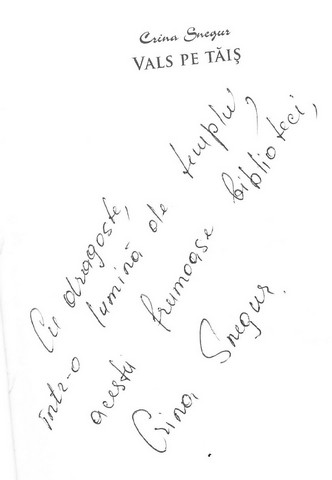 Crina Snegur
VALS PE TĂIȘ
Cu dragoste,
într-o lumină de templu,
acestei frumoase biblioteci,
Crina Snegur.